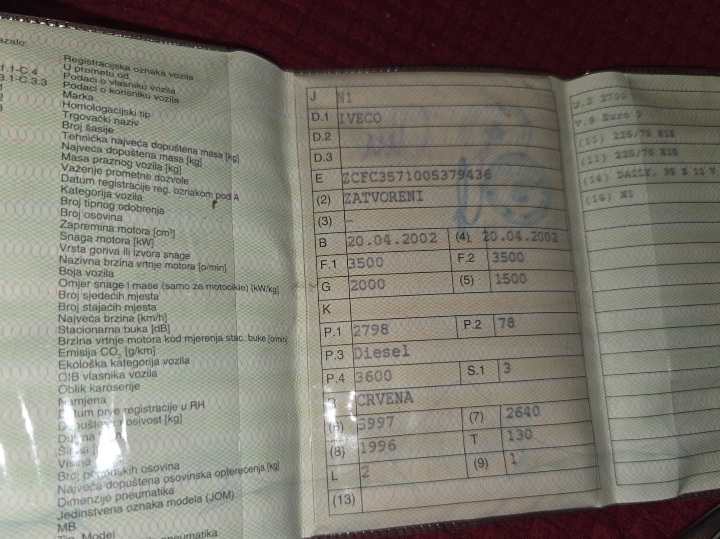 1.1-C.4
3.1-C.3.3
Registracijska oznaka vozila
U prometu od
Podaci o vlasniku vozila
Podaci o korisniku vozila
Marka
Homologacijski tip
Trgovački naziv
Broj šasije
Tehnička najveća dopuštena masa [kg]
Najveća dopuštena masa [kg]
Masa praznog vozila [kg]
Važenje prometne dozvole
Datum registracije reg. oznakom pod A
Kategorija vozila
Broj tipnog odobrenja
Broj osovina
Zapremina motora [cm³]
Snaga motora [kW]
Vrsta goriva ili izvora snage
Nazivna brzina vrtnje motora [o/min]
Boja vozila
Omjer snage i mase (samo za motocikle) [kW/kg]
Broj sjedećih mjesta
Broj stajaćih mjesta
Najveća brzina [km/h]
Stacionarna buka [dB]
Brzina vrtnje motora kod mjerenja stac. buke [o/min]
Emisija CO₂ [g/km]
Ekološka kategorija vozila
OIB vlasnika vozila
Oblik karoserije
Namjena
Datum prve registracije u RH
nosivost [kg]
Visina
Broj pogonskih osovina
Najveća dopuštena osovinska opterećenja [kg]
Dimenzije pneumatika
Jedinstvena oznaka modela (JOM)
MB
J N1
D.1 IVECO
D.2
D.3
E ZCFC3571005379436
(2) ZATVORENI
(3) –
B 20.04.2002 (4) 20.04.2002
F.1 3500 F.2 3500
G 2000 (5) 1500
K
P.1 2798 P.2 78
P.3 Diesel
P.4 3600 S.1 3
R CRVENA
(6) 5997 (7) 2640
(8) 1996 T 130
L 2 (9) 1
(13)
V.9 Euro 3
(11) 225/75 R16
(11) 225/75 R16
(14) DAILY. 35 S 11 V
(16) N1